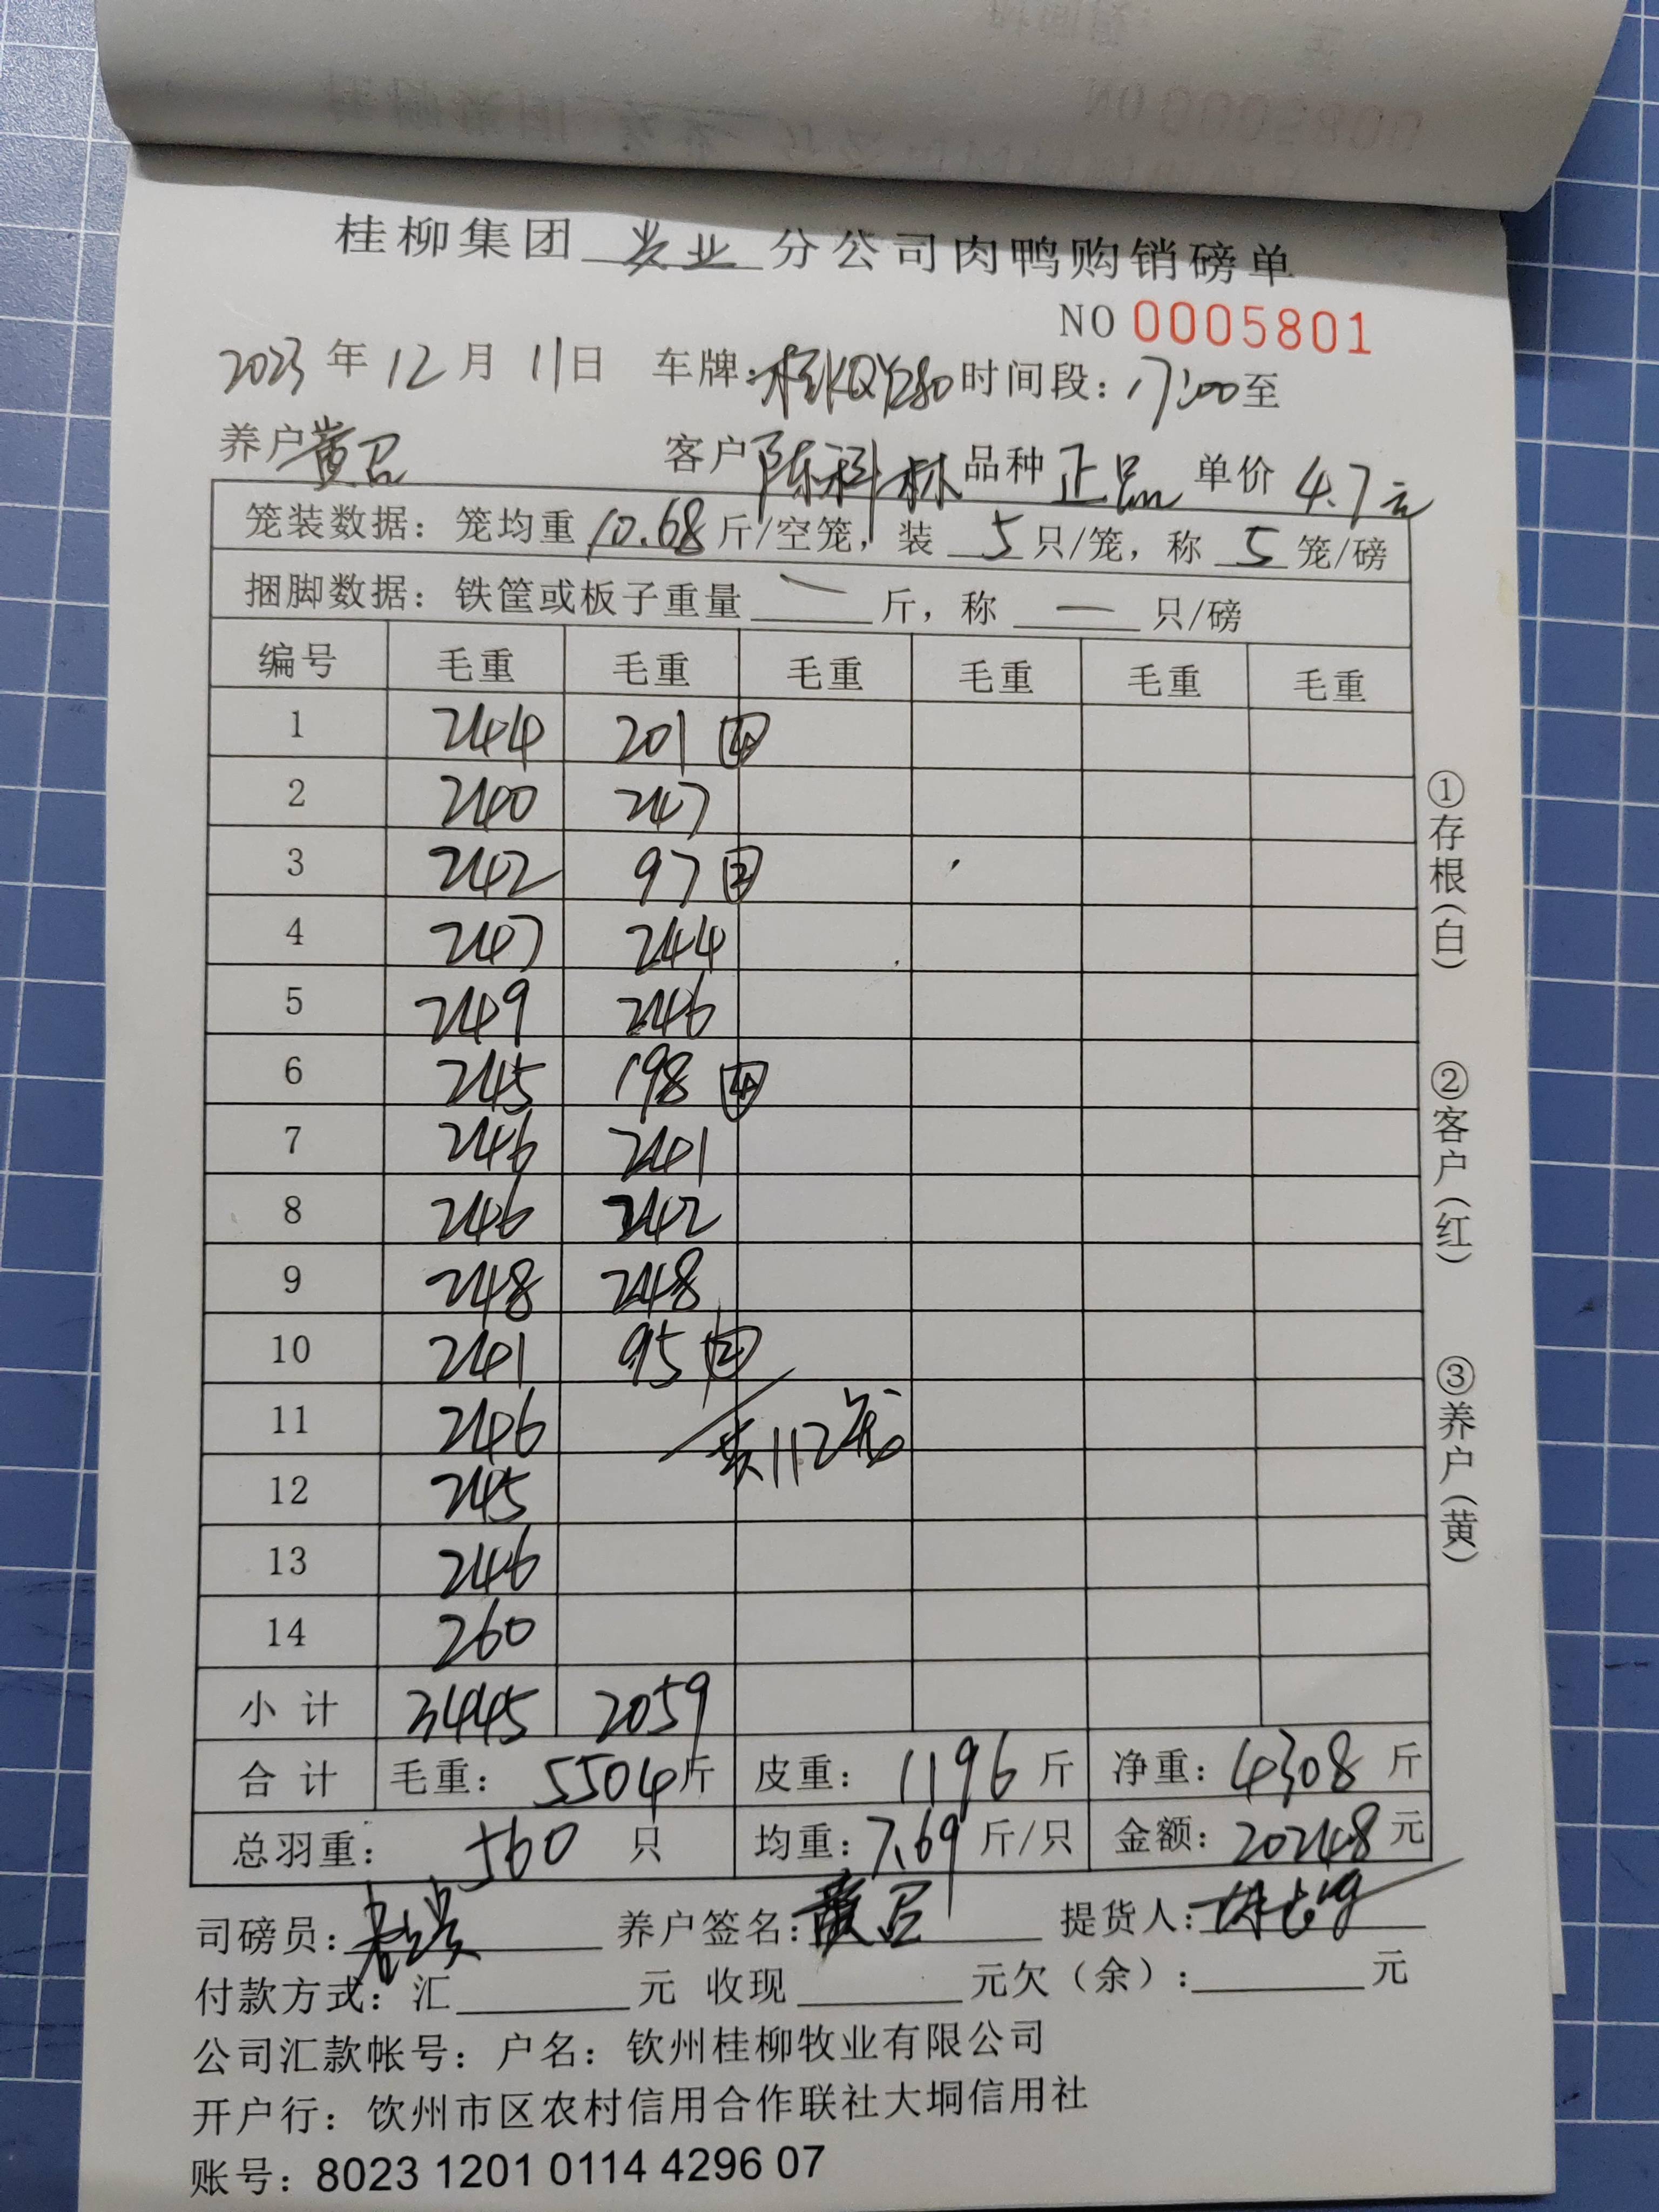 桂柳集团 农业 分公司肉鸭购销磅单
NO 0005801
2023 年 12 月 11 日 车牌：桂KQY280 时间段：17:00 至
养户 黄召 客户 陈科林 品种 正品 单价 4.7元
笼装数据：笼均重 10.68 斤/空笼，装 5 只/笼，称 5 笼/磅
捆脚数据：铁筐或板子重量 — 斤，称 — 只/磅
编号 毛重 毛重 毛重 毛重 毛重 毛重
1 244 201 4
2 240 247
3 242 97 2
4 247 244
5 249 246
6 245 198 4
7 246 241
8 246 242
9 248 248
10 241 95 2
11 246
共112笼
12 245
13 246
14 260
小计 3445 2059
合计 毛重：5504斤 皮重：1196 斤 净重：4308 斤
总羽重：560 只 均重：7.69 斤/只 金额：20248 元
司磅员： 养户签名：黄召 提货人：
付款方式：汇 元 收现 元欠（余）： 元
公司汇款帐号：户名：钦州桂柳牧业有限公司
开户行：饮州市区农村信用合作联社大垌信用社
账号：8023 1201 0114 4296 07
①存根（白）
②客户（红）
③养户（黄）